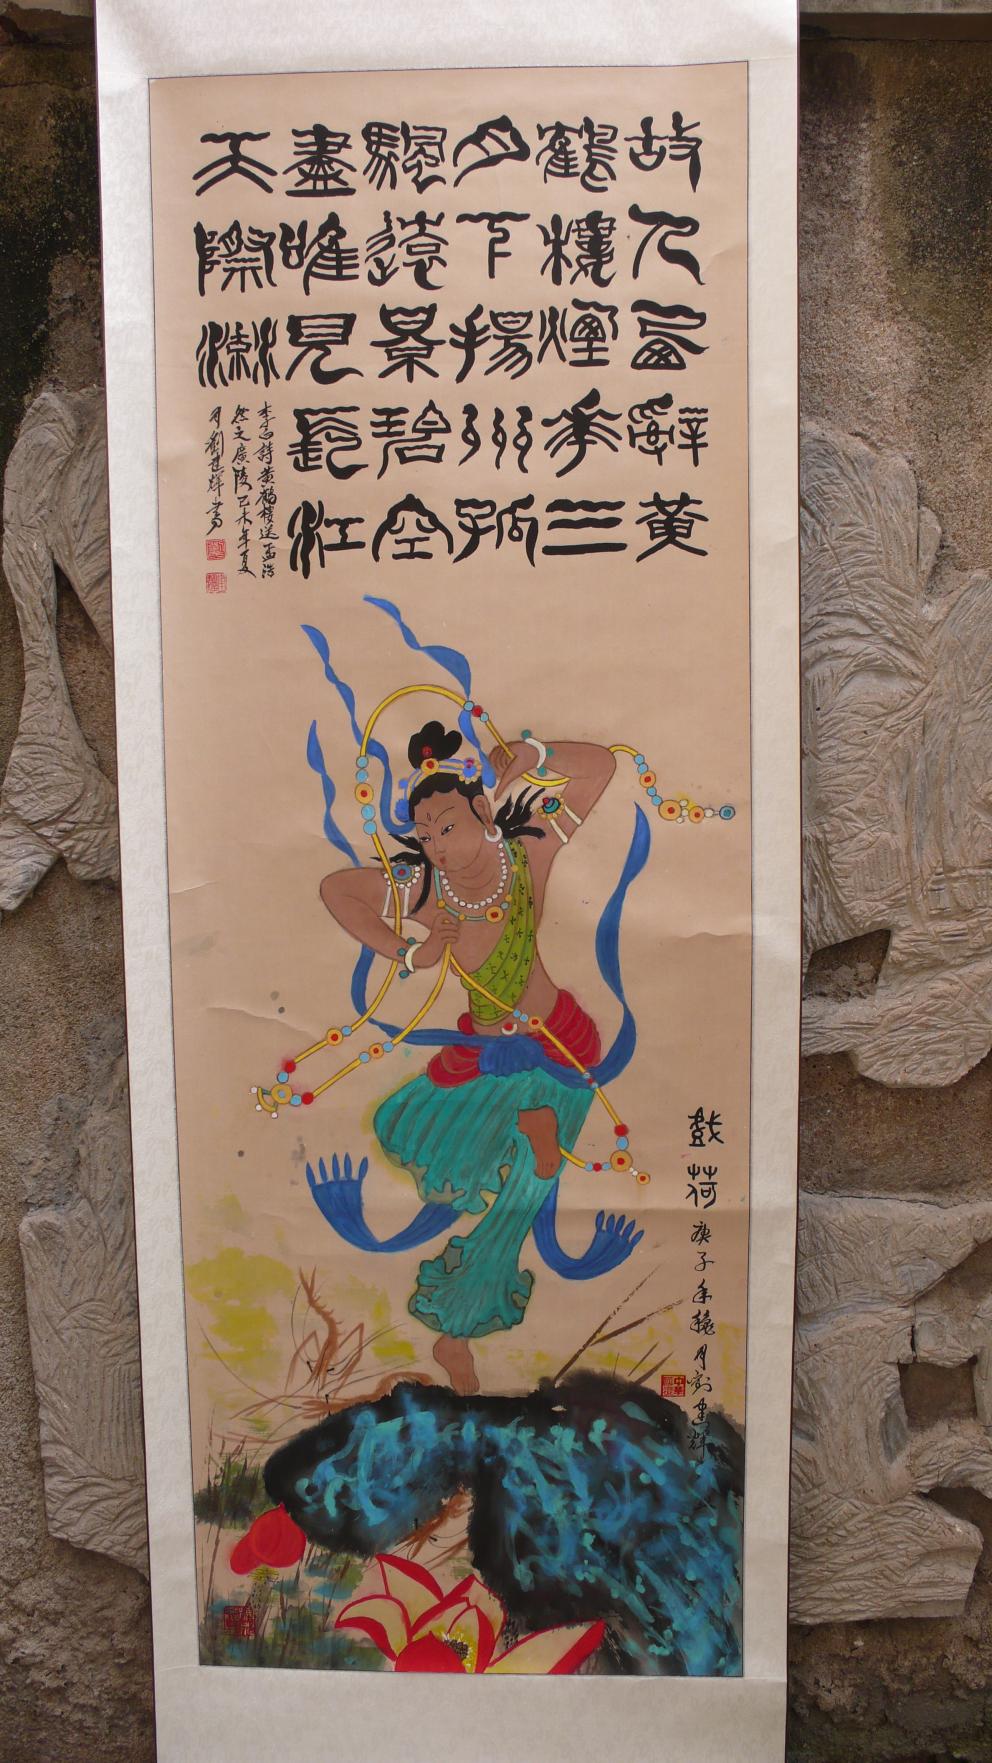 故人西辭黄
鶴樓煙花三
月下揚州孤
颿遠景碧空
盡唯見長江
天際流
李白詩黄鶴樓送孟浩
然之廣陵己未年夏
月劉建輝書
戲荷庚子年穐月劉建輝